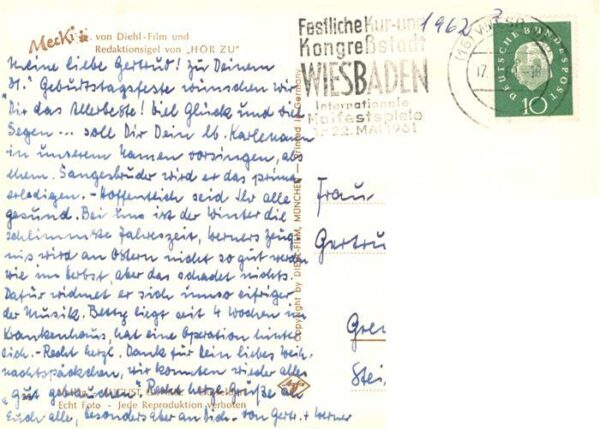 Mecki
von Diehl-Film und
Redaktionsigel von „HÖR ZU"
Meine liebe Gertrud! Zu Deinem
31. Geburtstagsfeste wünschen wir
Dir das Allerbeste! Viel Glück und viel
Segen ... soll Dir Dein lb. Karlemann
in unserem Namen vorsingen, als
ehem. Sangesbruder wird er das prima
erledigen. - Hoffentlich seid Ihr alle
gesund. Bei uns ist der Winter die
schlimmste Jahreszeit, Werners Zeug-
nis wird an Ostern nicht so gut werden
wie im Herbst, aber das schadet nichts.
Dafür widmet er sich umso eifriger
der Musik. Betty liegt seit 4 Wochen im
Krankenhaus, hat eine Operation hinter
sich. - Recht herzl. Dank für Dein liebes Weih-
nachtspäckchen, wir konnten wieder alles
„gut gebrauchen". Recht herzl. Grüße an
Euch alle, besonders aber an Dich - von Gertr. + Werner
AUGUST
Echt Foto - Jede Reproduktion verboten
Copyright by DIEHL-FILM, MÜNCHEN — Printed in Germany
Agfa
Festliche Kur-und
Kongreßstadt
WIESBADEN
Internationale
Maifestspiele
1.-22. MAI 1961
1962
(16) WIESB
17.
DEUTSCHE BUNDESPOST
10
Frau
Gertru
Gre
Stei